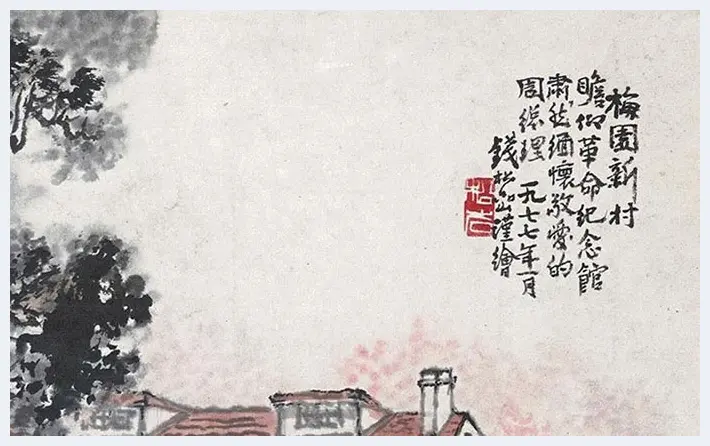 梅園新村
瞻仰革命纪念館
肃然缅懷敬愛的
周總理 一九七七年一月
錢松嵒瑾繪
松嵒